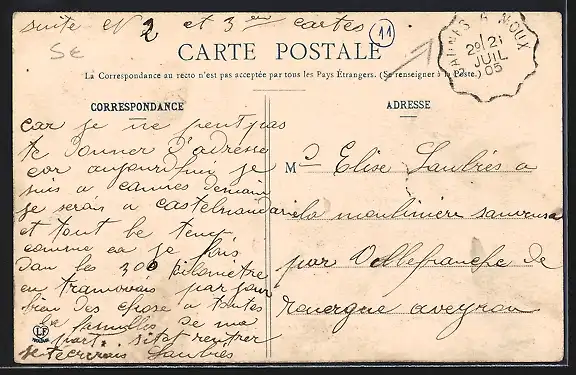 suite N 2 et 3 em cartes
11
CARTE POSTALE
La Correspondance au recto n'est pas acceptée par tous les Pays Étrangers. (Se renseigner à la Poste.)
2º 21
JUIL
05
CORRESPONDANCE
car je ne peut pas
te donner d'adresse
car aujourd'hui je
suis a cannes demain
je serais a castelnaudarie
et tout le temp
comme ca je fais
dan les 300 kilometre
en par jour
bien des chose a toutes
famille de ma
part. sitot rentrer
je t'ecrirais Laubrés
LF
ADRESSE
M Elise Laubrés a
la moulinière sauvensa
par Villefranche de
rouergue aveyron